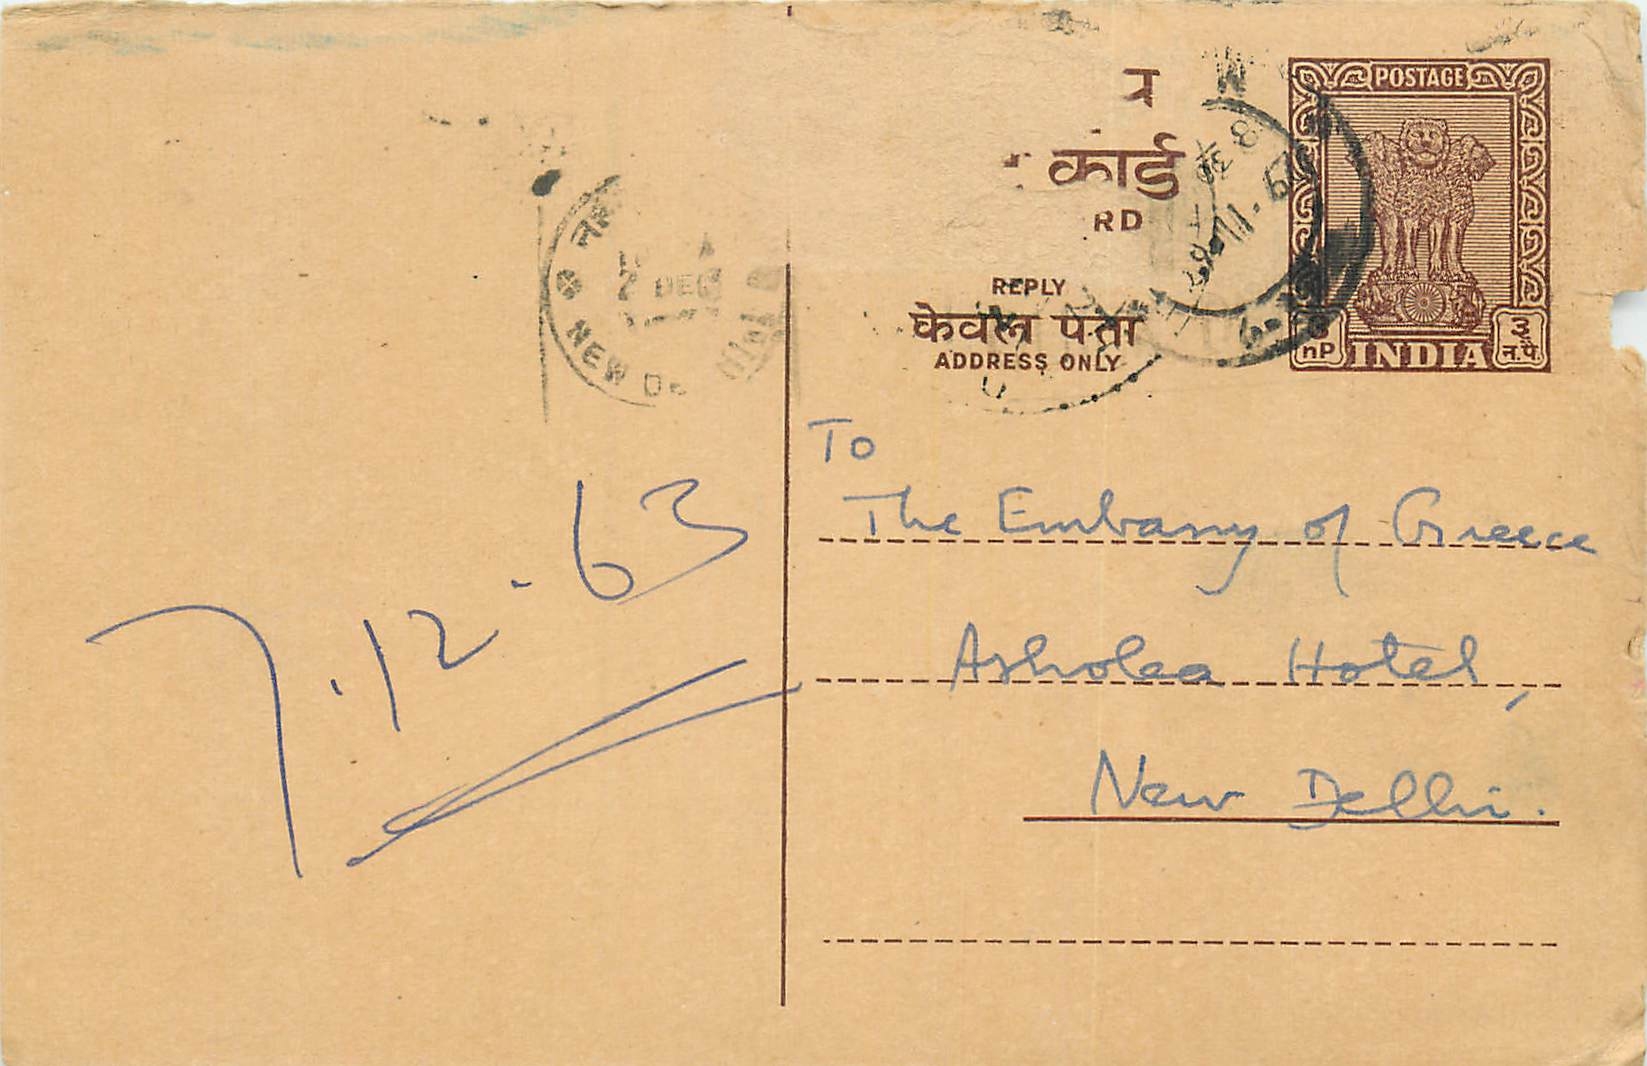 POSTAGE
कार्ड
RD
REPLY
केवल पता
ADDRESS ONLY
nP INDIA ३ न.पै.
2 DEC
NEW DE
7.12.63
To
The Embassy of Greece
Ashoka Hotel,
New Delhi.